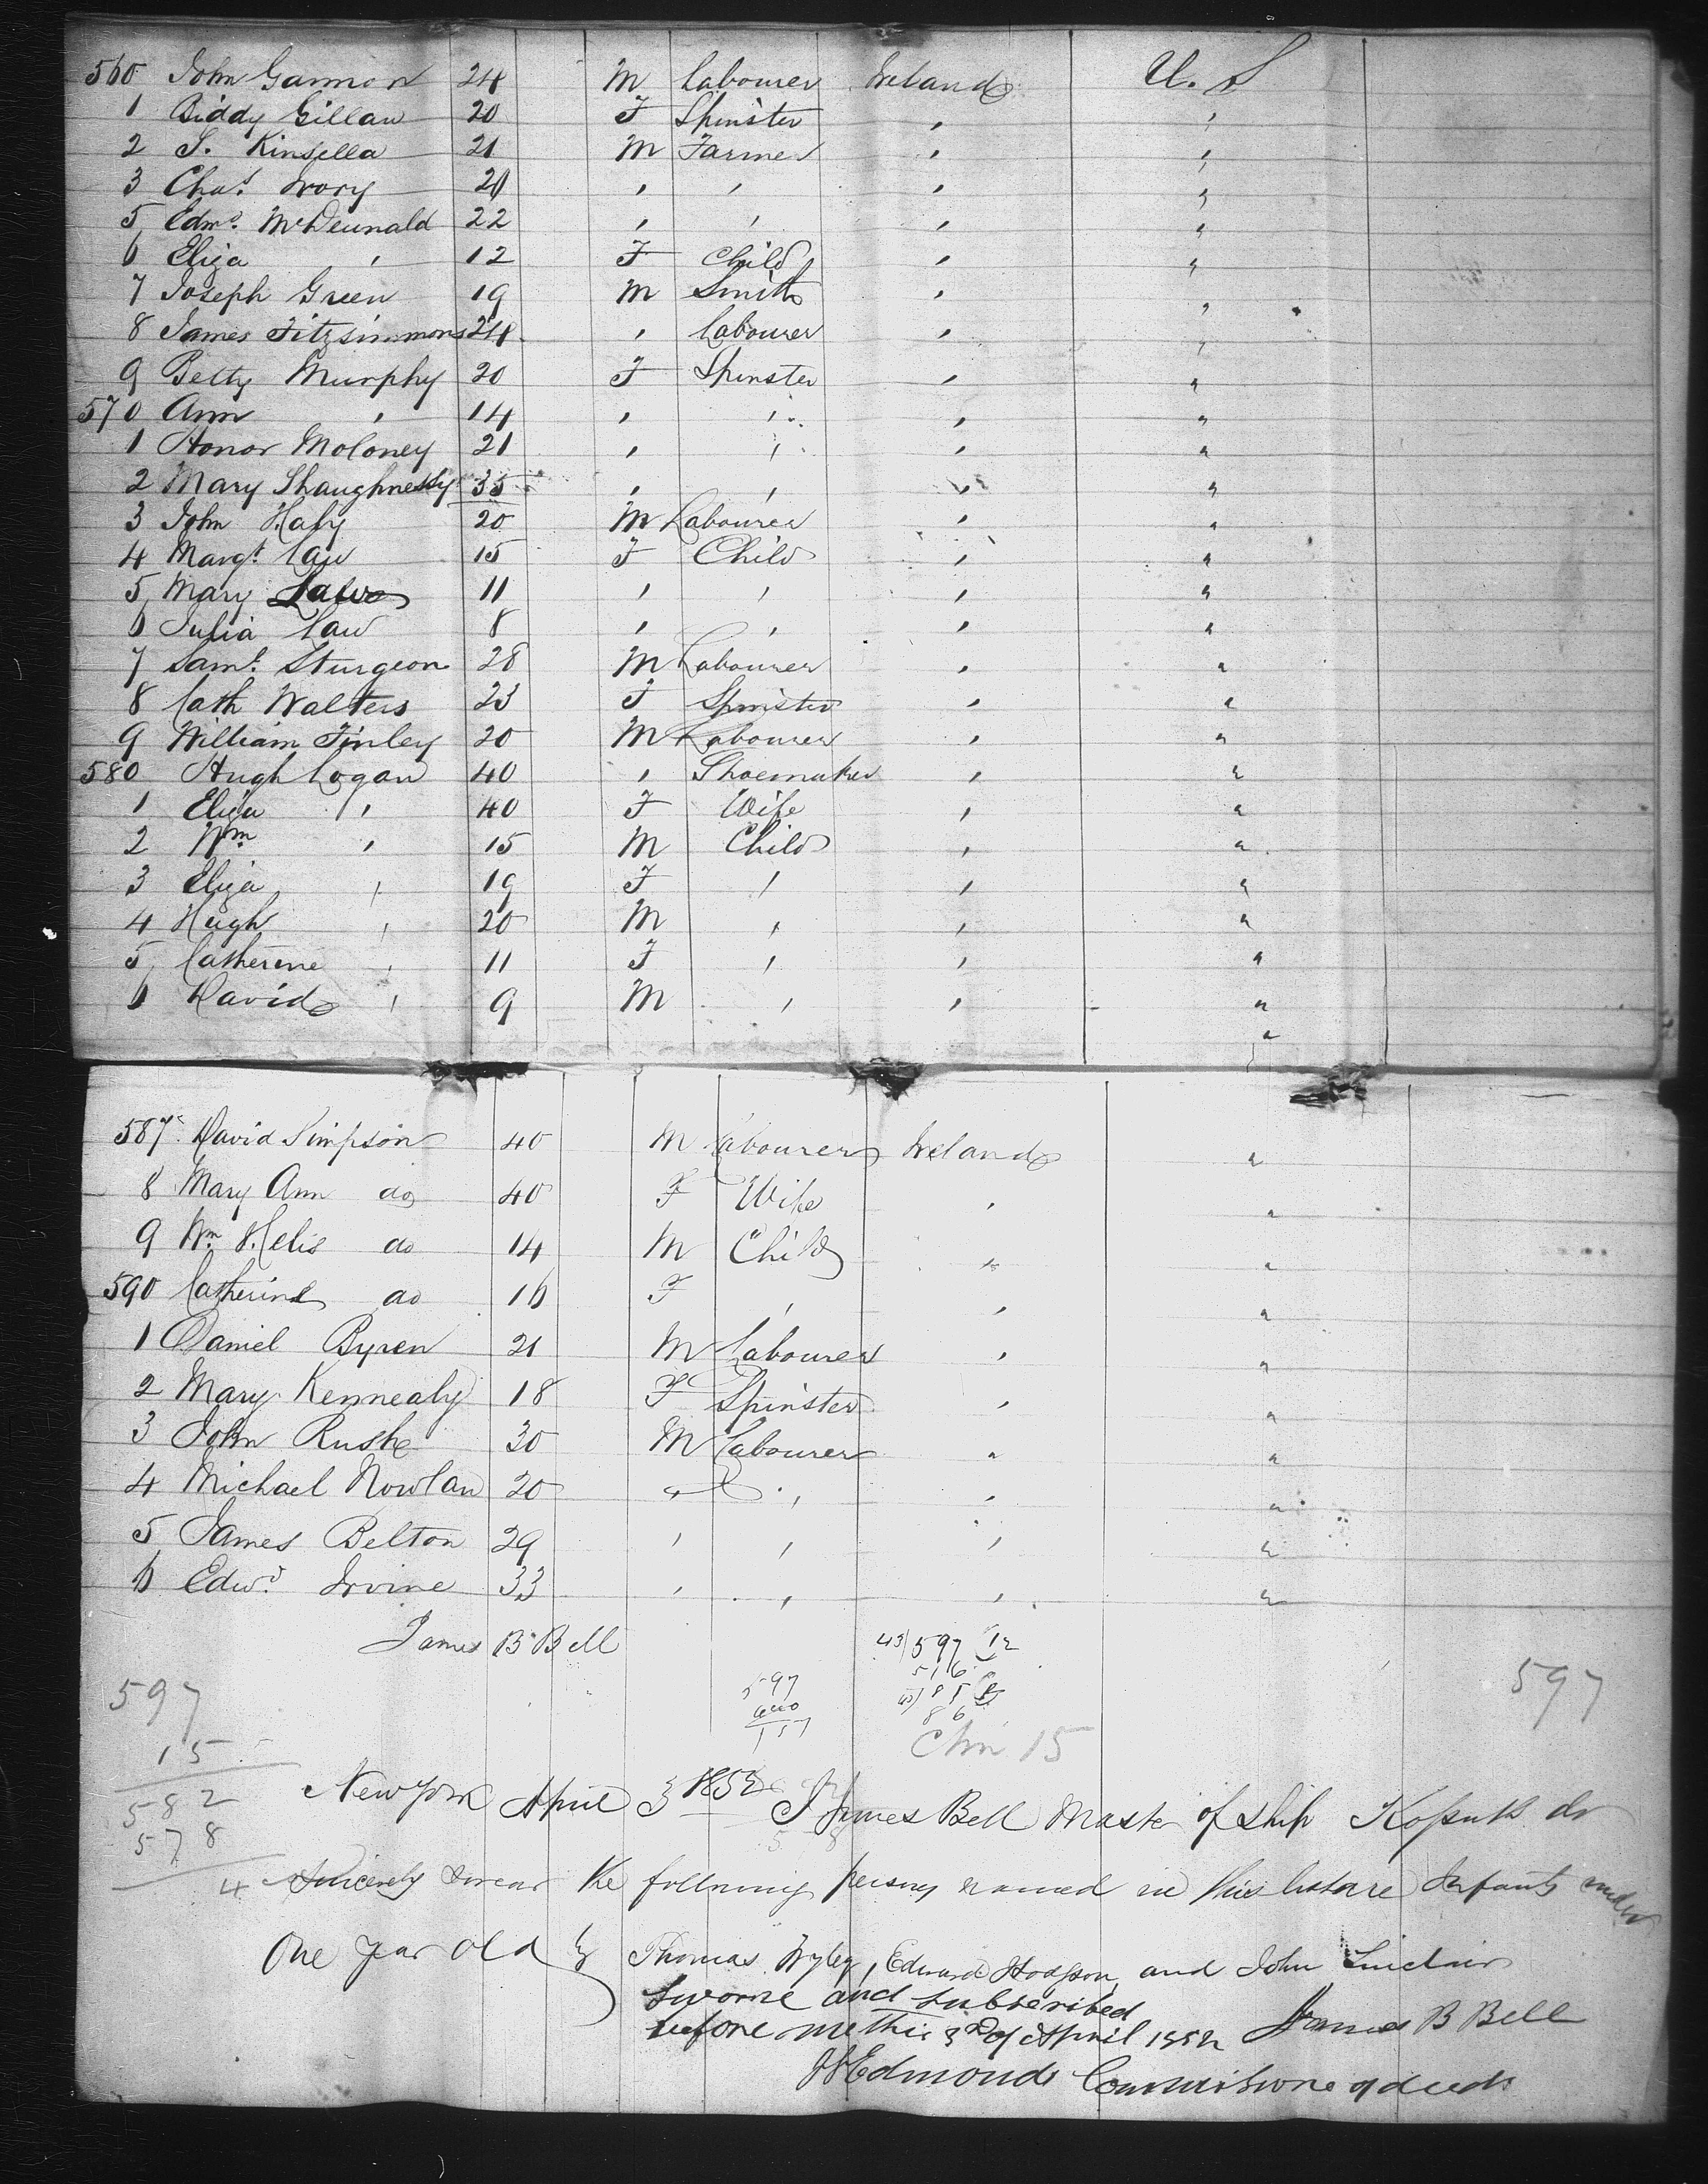 560 John Gannon 24 M Labourer Ireland U. S
1 Biddy Gillan 20 F Spinster , ,
2 J. Kinsella 21 M Farmer , ,
3 Chas. Ivory 20 , , , ,
5 Edmd. McDennald 22 , , , "
6 Eliza , 12 F Child , "
7 Joseph Green 19 M Smith , "
8 James Fitzsimmons 24 , Labourer , ,
9 Betty Murphy 20 F Spinster , "
570 Ann , 14 , , , "
1 Honor Moloney 21 , , , "
2 Mary Shaughnessy 35 , , , "
3 John Haly 20 M Labourer , "
4 Margt. Law 15 F Child , "
5 Mary Law 11 , , , "
6 Julia Law 8 , , , "
7 Saml. Sturgeon 28 M Labourer , "
8 Cath Walters 23 F Spinster , "
9 William Finley 20 M Labourer , "
580 Hugh Logan 40 , Shoemaker , "
1 Eliza , 40 F Wife , "
2 Wm , 15 M Child , "
3 Eliza , 19 F , , "
4 Hugh , 20 M , , "
5 Catherine , 11 F , , "
6 David , 9 M , , "
"
587 David Simpson 40 M Labourer Ireland "
8 Mary Ann do 40 F Wife , "
9 Wm. do 14 M Child " "
590 Catherine do 16 F , , "
1 Daniel Byren 21 M Labourer , "
2 Mary Kennealy 18 F Spinster , "
3 John Rushe 30 M Labourer " "
4 Michael Nowlan 20 " , , "
5 James Belton 29 , , , "
6 Edwd. Irvine 33 , , , "
James B Bell
43) 597 (12
516
597
440
157
86
Chn 15
597
597
15
582
578
4
New York April 3 1852 I James Bell Master of Ship Kossuth do
Sincerely Swear the following persons named in this list are Infants under
One Year Old Thomas Wyley, Edward Hodgson, and John Sinclair
Sworne and subscribed
before me this 3d of April 1852 James B Bell
Edmonds Commissione of deeds